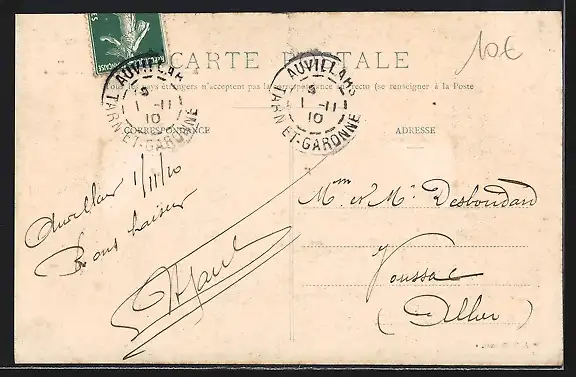 10€
CARTE POSTALE
Tous les pays étrangers n'acceptent pas la correspondance au recto (se renseigner à la Poste
AUVILLAR
5
1 -11
10
TARN-ET-GARONNE
AUVILLARS
5
1 -11
10
TARN-ET-GARONNE
CORRESPONDANCE
ADRESSE
Auvillar 1/11/10
Bons baisers
Mme et Mr Desboudard
Voussac
(Allier)